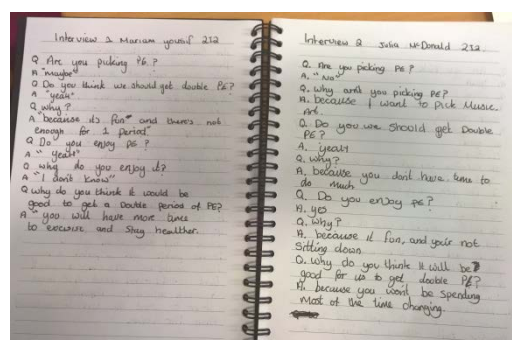 Interview 1 Mariam yousif 2I2
Q Are you picking PE?
A "maybe"
Q Do you think we should get double PE?
A "yeah"
Q why?
A "because its fun" and there's not
enough for 1 period"
Q Do you enjoy PE?
A "yeah"
Q why do you enjoy it?
A "I don't know"
Q why do you think it would be
good to get a Double period of PE?
A "you will have more time
to exercise and Stay healther.
Interview 2 Julia McDonald 2I2.
Q. Are you picking PE?
A. "No"
Q. Why arn't you picking PE?
A. because I want to Pick Music
Art.
Q. Do you we Should get Double
PE?
A. yeah
Q. Why?
A. because you dont have time to
do much
Q. Do you enjoy PE?
A. yes
Q. Why?
A. because it fun, and your not
Sitting down
Q. why do you think it will be
good for us to get double PE?
A. because you won't be spending
most of the time changing.